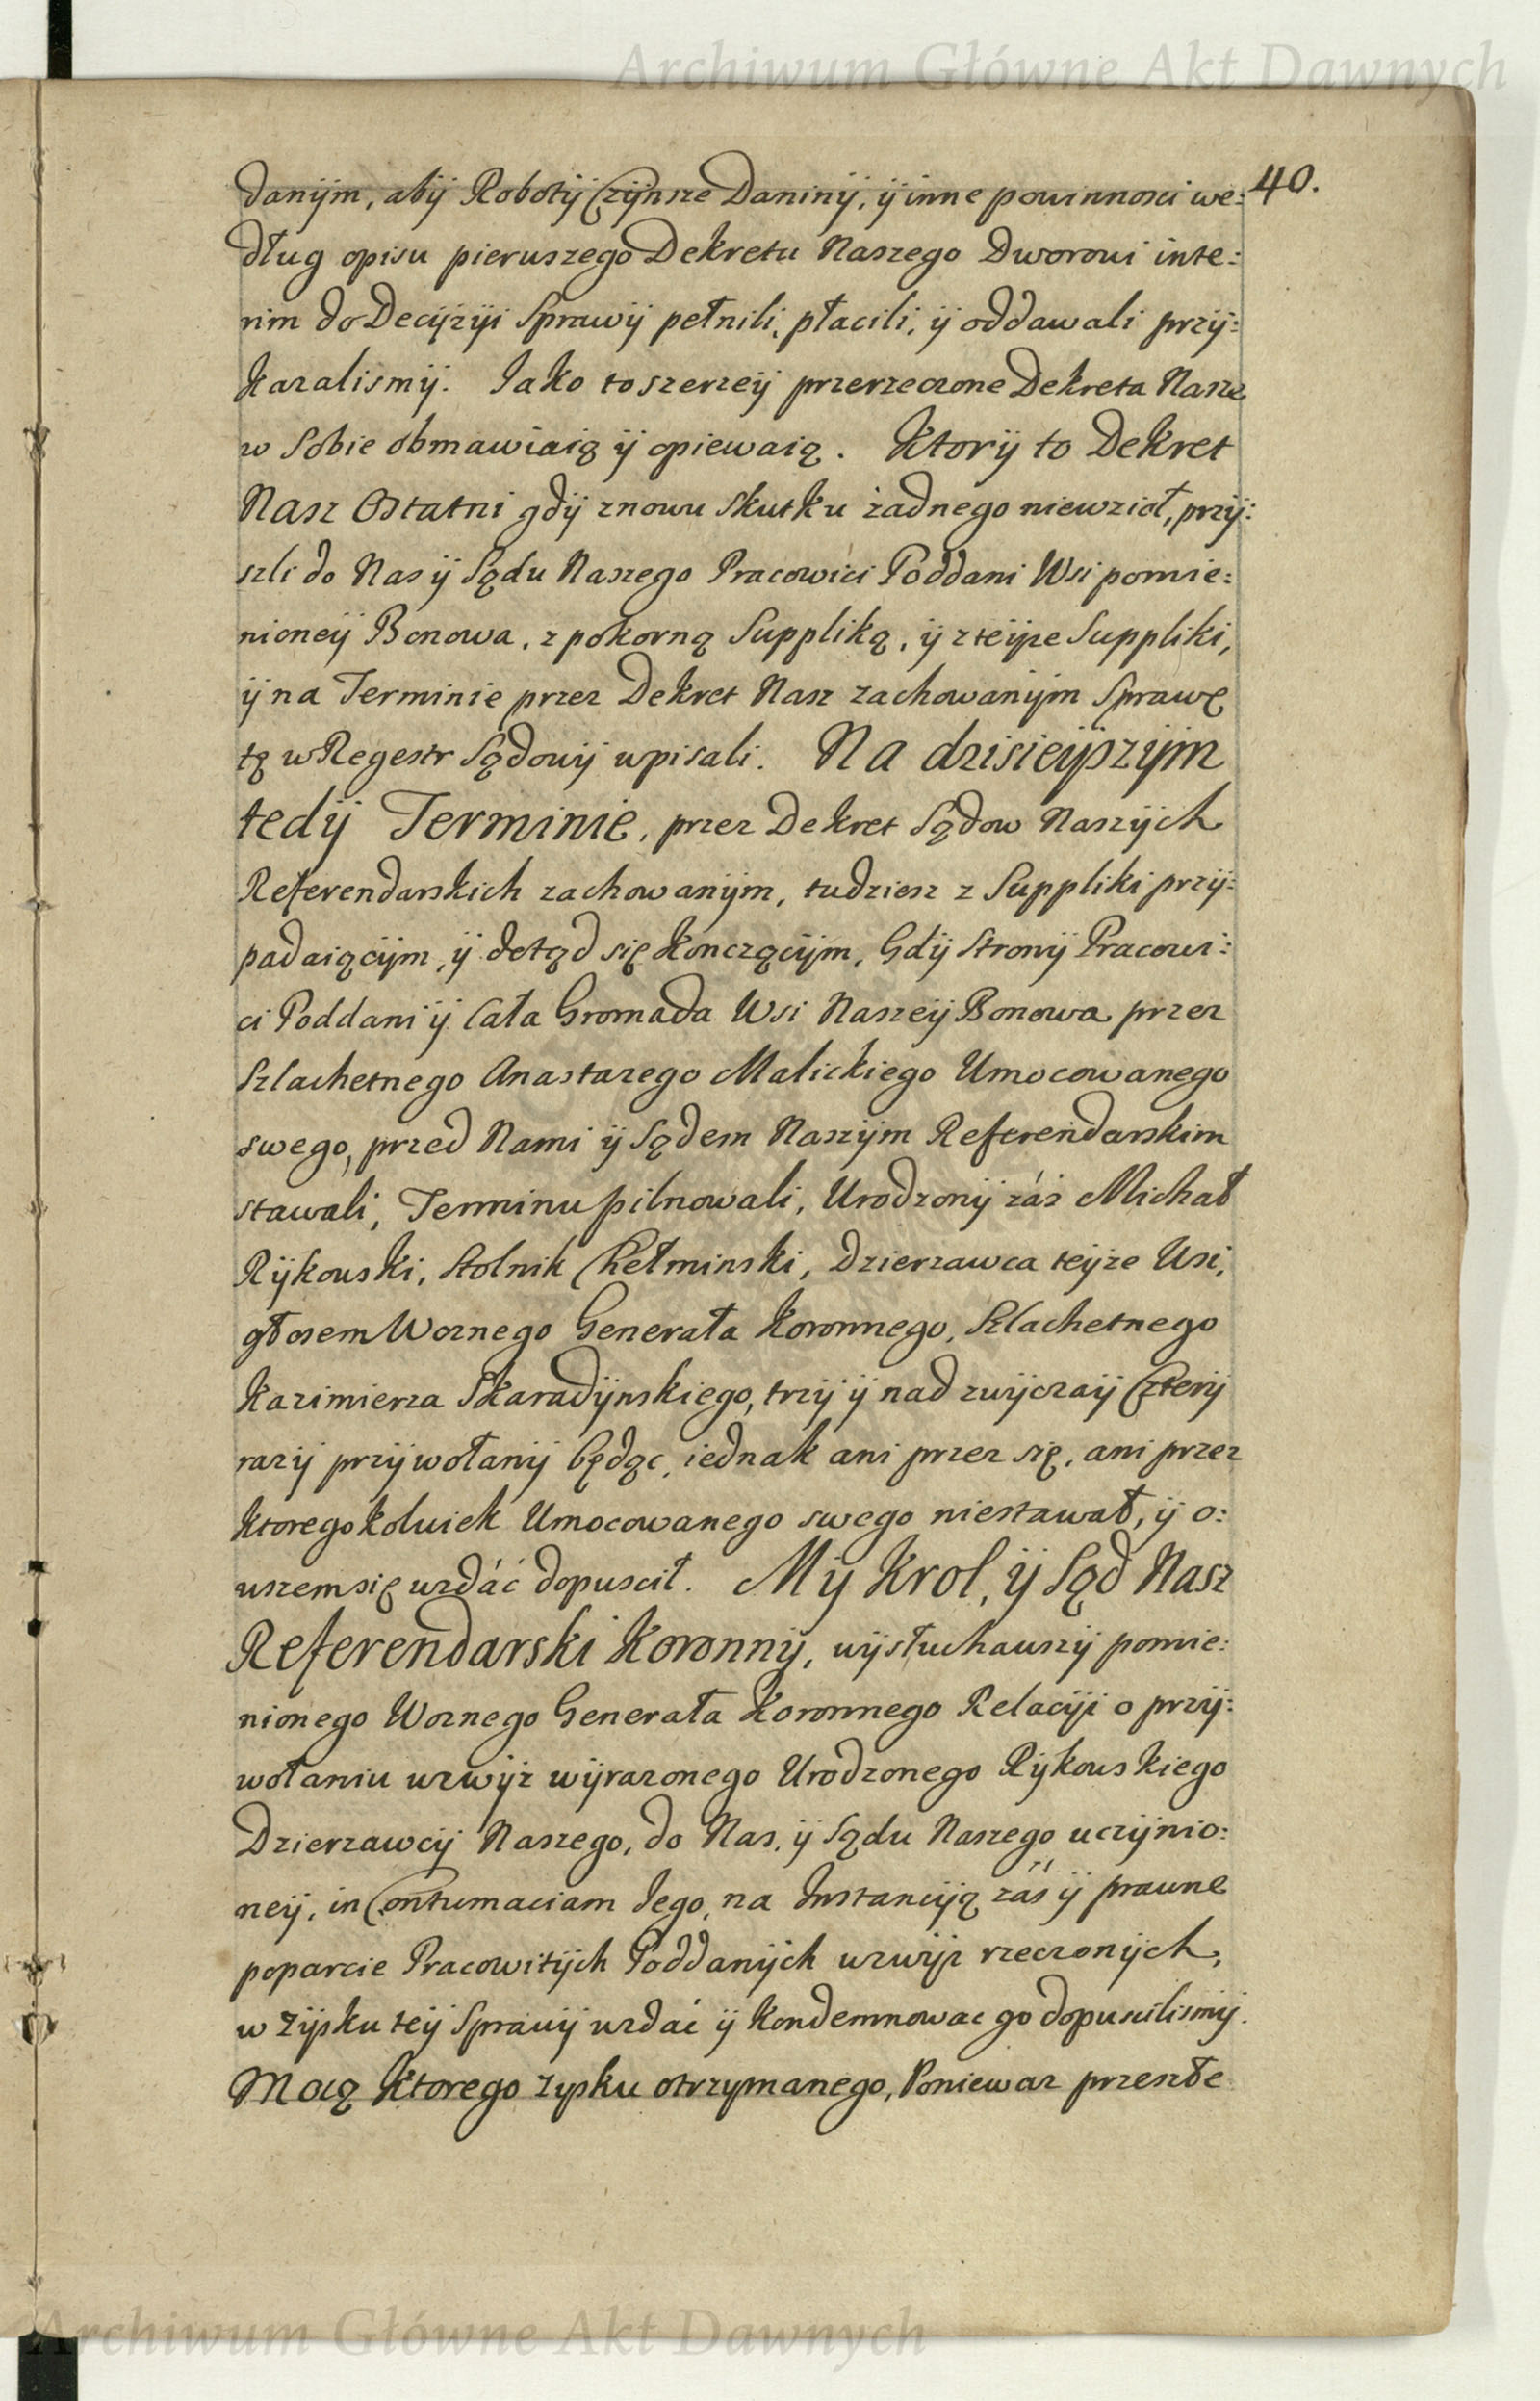 Archiwum Główne Akt Dawnych
40.
danÿm, abÿ Robotÿ Czÿnsze Daninÿ, ÿ inne powinnosci we:
dług opisu pierwszego Dekretu Naszego Dworowi inte:
rim do Decÿzÿi Sprawÿ pełnili, płacili, ÿ oddawali przÿ:
kazalismÿ. Jako to szerzeÿ przerzeczone Dekreta Nasze
w Sobie obmawiaią ÿ opiewaią. Ktorÿ to Dekret
Nasz Ostatni gdÿ znowu Skutku żadnego niewzioł, przÿ:
szli do Nas ÿ Sądu Naszego Pracowici Poddani Wsi pomie:
nioneÿ Bonowa, z pokorną Suppliką, ÿ z teÿze Suppliki,
ÿ na Terminie przez Dekret Nasz zachowanÿm Sprawę
tę w Regestr Sądowÿ wpisali. Na dzisieÿszÿm
tedÿ Terminie, przez Dekret Sądow Naszÿch
Referendarskich zachowanÿm, tudziesz z Suppliki przÿ:
padaiącÿm, ÿ dotąd się konczącÿm, Gdÿ Stronÿ Pracowi:
ci Poddani ÿ Cała Gromada Wsi Naszeÿ Bonowa przez
Szlachetnego Anastazego Malickiego Umocowanego
swego, przed Nami ÿ Sądem Naszÿm Referendarskim
stawali, Terminu pilnowali, Urodzonÿ záś Michał
Rÿkowski, Stolnik Chełminski, Dzierzawca teÿze Wsi,
głosem Woznego Generała Koronnego, Szlachetnego
Kazimierza Skaradÿnskiego, trzÿ ÿ nad zwÿczaÿ Czterÿ
razÿ przÿwołanÿ będąc, iednak ani przez się, ani przez
ktoregokolwiek Umocowanego swego niestawał, ÿ o:
wszem się wzdáć dopuscił. Mÿ Krol, ÿ Sąd Nasz
Referendarski Koronnÿ, wÿsłuchawszÿ pomie:
nionego Woznego Generała Koronnego Relacÿi o przÿ:
wołaniu wzwÿz wÿrazonego Urodzonego Rÿkowskiego
Dzierzawcÿ Naszego, do Nas, ÿ Sądu Naszego uczÿnio:
neÿ, in Contumaciam Jego, na Instancÿą záś ÿ prawne
poparcie Pracowitÿch Poddanÿch wzwÿz rzeczonÿch,
w Zÿsku teÿ Sprawÿ wzdać ÿ kondemnowac go dopuscilismÿ.
Mocą ktorego zysku otrzymanego, Poniewaz przeszłe
Archiwum Główne Akt Dawnych